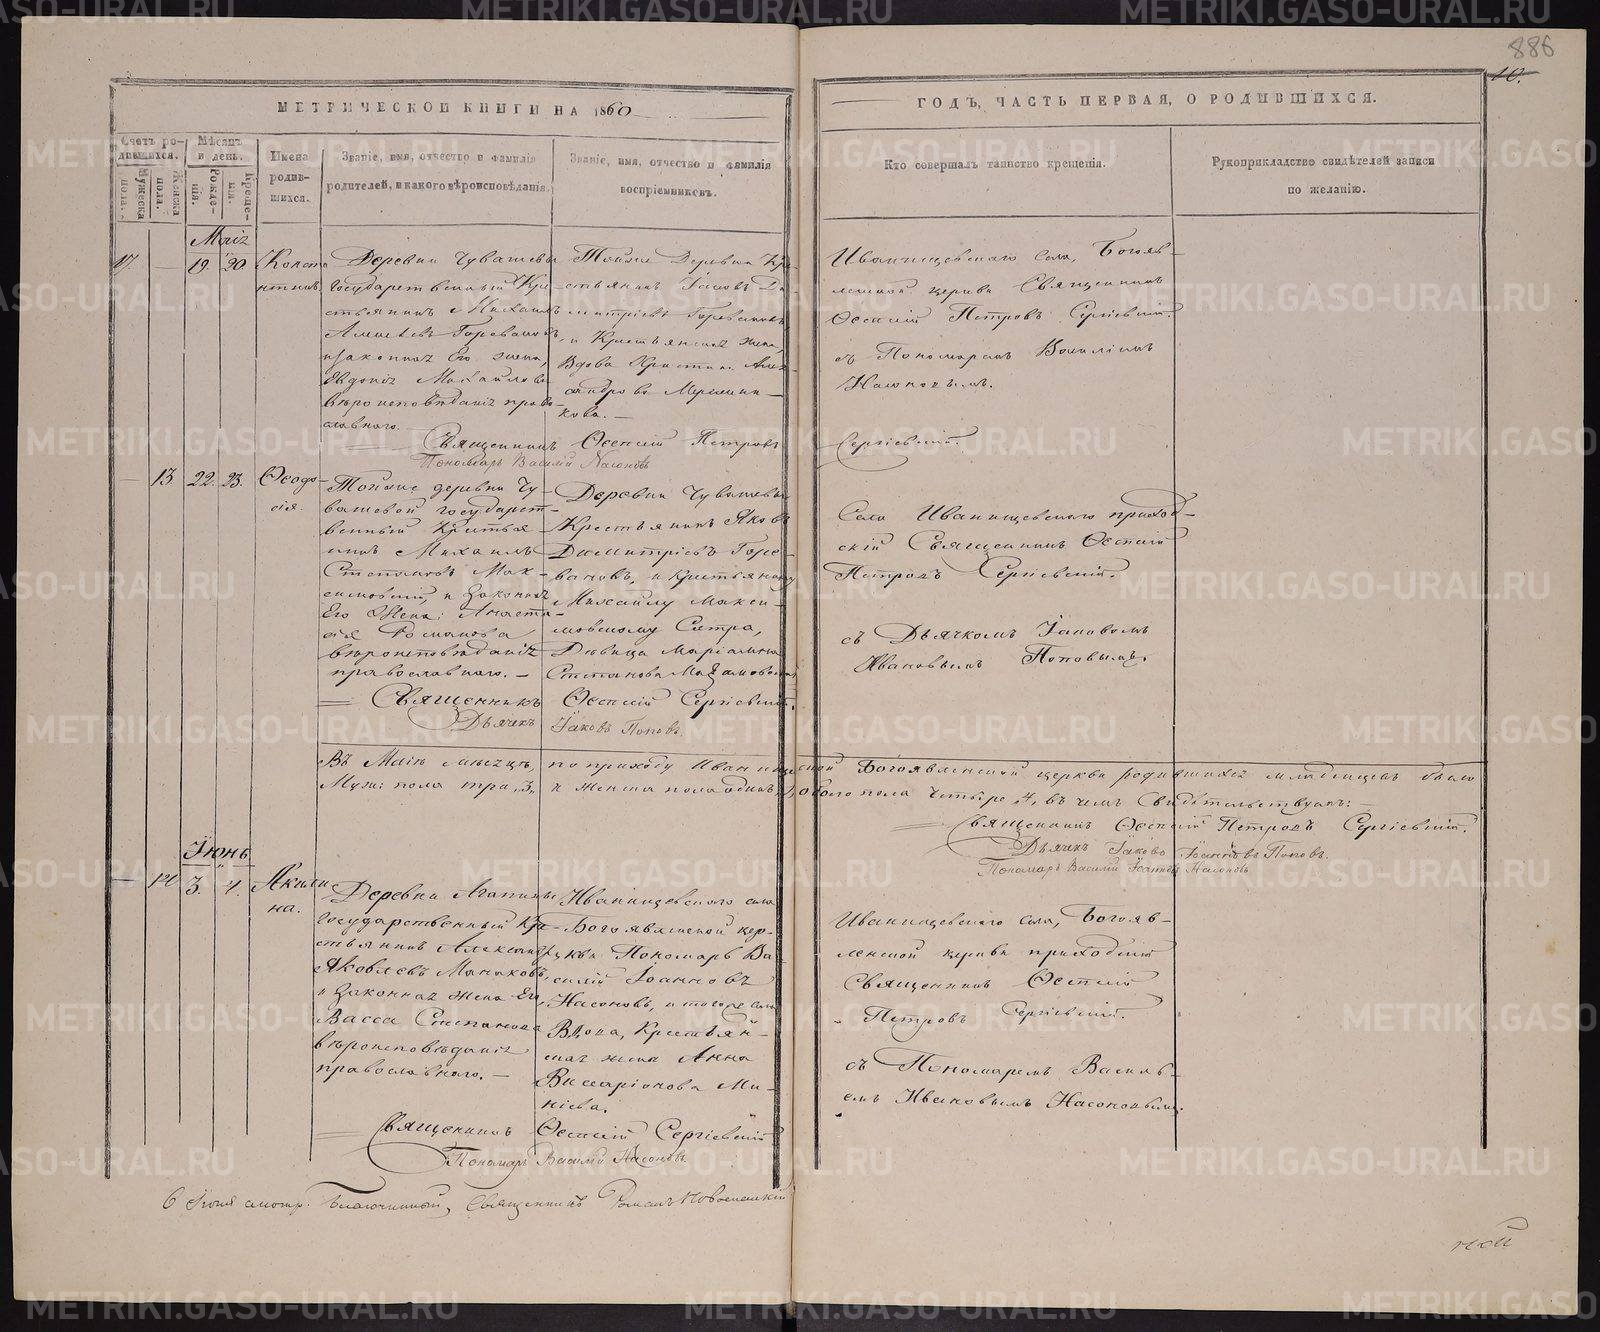 886
10.
МЕТРИЧЕСКОЙ КНИГИ НА 1860
ГОДЪ, ЧАСТЬ ПЕРВАЯ, О РОДИВШИХСЯ.
Счетъ родившихся.
Мужеска пола.
Женска пола.
Мѣсяцъ и день.
Рожденія.
Крещенія.
Имена родившихся.
Званіе, имя, отчество и фамилія
родителей, и какого вѣроисповѣданія.
Званіе, имя, отчество и фамилія
воспріемниковъ.
Кто совершалъ таинство крещенія.
Рукоприкладство свидѣтелей записи
по желанію.
Маія
17. — 19. 20.
Конста
нтинъ
Деревни Чувашевы
государственный Кре
стьянинъ Михаилъ
Горевановъ,
и законная Его жена,
Евдокія Михайлова
вѣроисповѣданія право-
славнаго.
Тойже Деревни Кре-
стьянинъ Іаковъ Ди-
митріевъ Горевановъ,
и Крестьянская жена,
Вдова Христина Алек-
сандрова
кова. —
Иванищевскаго села, Богояв-
ленской церкви Священникъ
Ѳеспсій Петровъ Сергіевскій.
съ Пономаремъ Василіемъ
Насоновымъ.
Священникъ Петровъ
Сергіевскій.
Пономарь Василій Насоновъ
— 13 22. 23.
Ѳеодо-
сія.
Тойже деревни Чу-
вашевой государст-
венный Крестья
нинъ Михаилъ
Степановъ Мак-
симовскій, и законная
Его Жена: Анаста-
сія Романова
вѣроисповѣданія
православнаго. —
Деревни Чувашевы
Крестьянинъ Яковъ
Димитріевъ Горе-
вановъ, и Крестьянину
Михаилу Макси-
мовскому Сестра,
Дѣвица Маріамна
Степанова
Села Иванищевскаго приход-
скій Священникъ
Петровъ Сергіевскій.
съ Дьячкомъ Іаковомъ
Ивановымъ Поповымъ.
Священникъ Сергіевскій.
Дьячекъ Іаковъ Поповъ.
Въ Маіѣ мѣсяцѣ, по приходу Иванищевской Богоявленской церкви родившихся младенцевъ было
Муж: пола три, 3, и женска пола одинъ, 1, обоего пола четыре, 4, въ чемъ Свидѣтельствуютъ: —
Священникъ Петровъ Сергіевскій.
Дьячекъ Іаковъ Іоанновъ Поповъ.
Пономарь Василій Іоанновъ Насоновъ
Іюнь
— 14 3. 4.
Акили
на.
Деревни
государственный Кре-
стьянинъ Александръ
Яковлевъ
и законная жена Его,
Васса Степанова
вѣроисповѣданія
православнаго. —
Иванищевскаго села
Богоявленской цер-
кви Пономарь Ва
силій Іоанновъ
Насоновъ, и тогоже села
Вдова, Крестьян-
ская жена Анна
Виссаріонова Ми-
нѣева.
Иванищевскаго села, Богояв-
ленской церкви приходскій
Священникъ
Петровъ Сергіевскій.
съ Пономаремъ Василь-
емъ Ивановымъ Насоновымъ.
Священникъ Сергіевскій
Пономарь Василій Насоновъ
6 Іюня смотр. Благочинный, Священникъ Романъ
METRIKI.GASO-URAL.RU